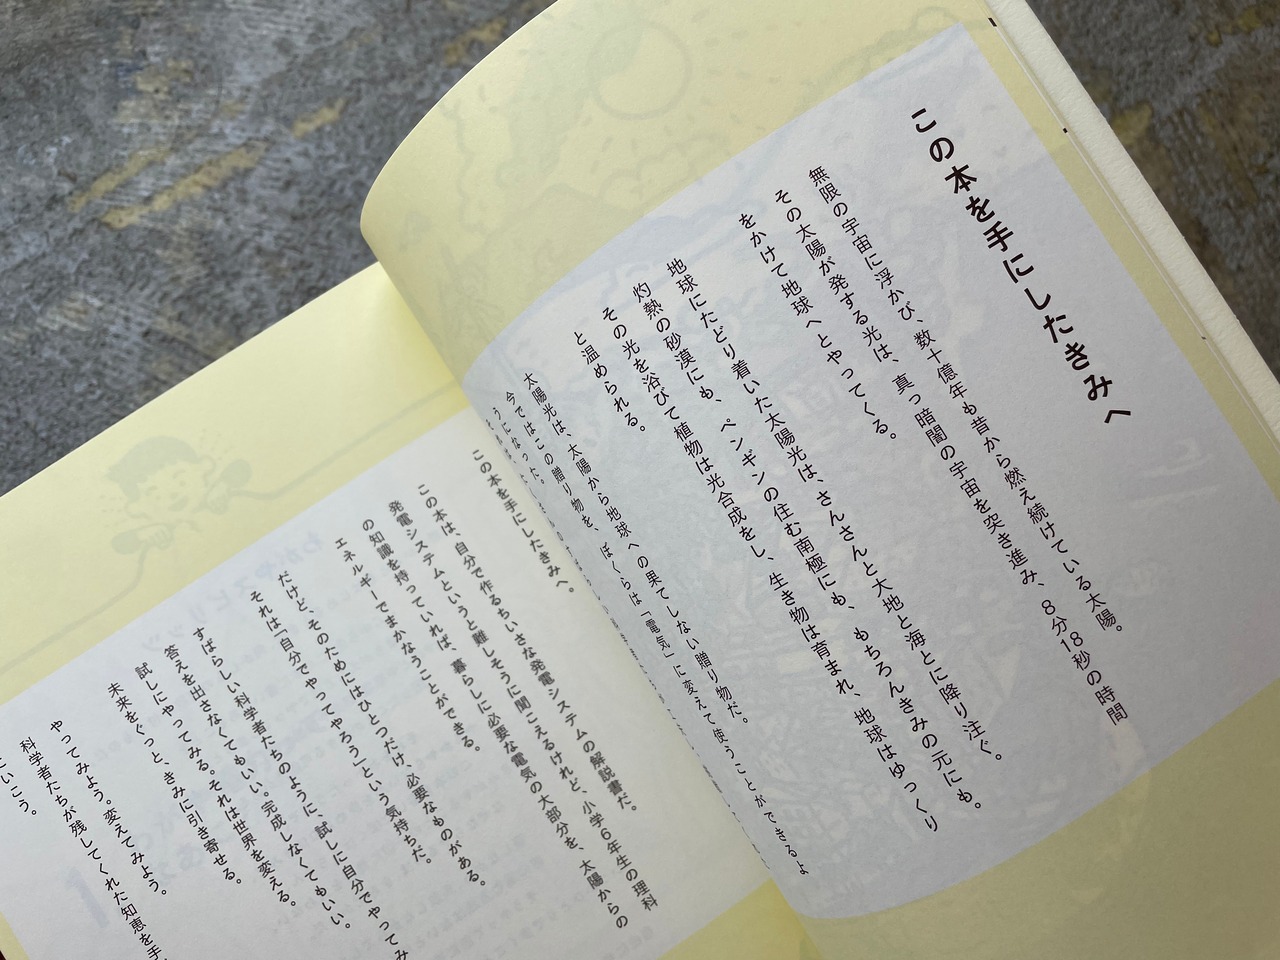 この本を手にしたきみへ
無限の宇宙に浮かび、数十億年も昔から燃え続けている太陽。
その太陽が発する光は、真っ暗闇の宇宙を突き進み、8分18秒の時間
をかけて地球へとやってくる。
地球にたどり着いた太陽光は、さんさんと大地と海とに降り注ぐ。
灼熱の砂漠にも、ペンギンの住む南極にも、もちろんきみの元にも。
その光を浴びて植物は光合成をし、生き物は育まれ、地球はゆっくり
と温められる。
太陽光は、太陽から地球への果てしない贈り物だ。
今ではこの贈り物を、ぼくらは「電気」に変えて使うことができるよ
うになった。
この本を手にしたきみへ。
この本は、自分で作るちいさな発電システムの解説書だ。
発電システムというと難しそうに聞こえるけれど、小学6年生の理科
の知識を持っていれば、暮らしに必要な電気の大部分を、太陽からの
エネルギーでまかなうことができる。
だけど、そのためにはひとつだけ、必要なものがある。
それは「自分でやってやろう」という気持ちだ。
すばらしい科学者たちのように、試しに自分でやってみ
答えを出さなくてもいい。完成しなくてもいい。
試しにやってみる。それは世界を変える。
未来をぐっと、きみに引き寄せる。
やってみよう。変えてみよう。
科学者たちが残してくれた知恵を手
いこう。